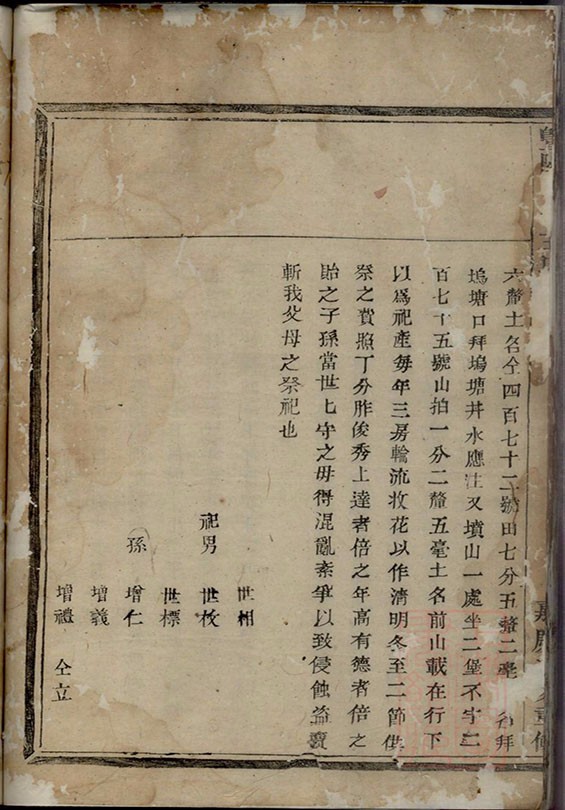 六釐土名仝四百七十二號田七分五釐二毫 台拜
塢塘口拜塢塘井水應注又墳山一處坐二堡不字二
百七十五號山拍一分二釐五毫土名前山載在行下
以爲祀產每年三房輪流收花以作清明冬至二節供
祭之費照丁分胙俊秀上達者倍之年高有德者倍之
貽之子孫當世上守之毋得混亂紊爭以致侵蝕盜賣
斬我父母之祭祀也
世相
祀男 世枚
世標
孫 增仁
增義
增禮 仝立